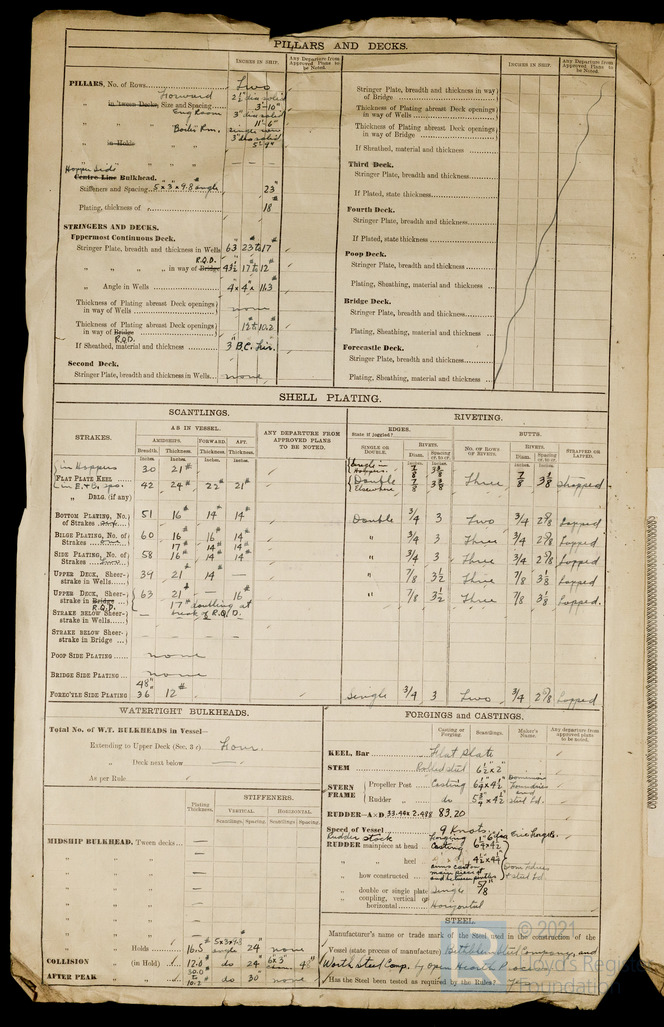 PILLARS AND DECKS.
INCHES IN SHIP.
Any Departure from Approved Plans to be Noted.
PILLARS, No. of Rows Two
Forward
" in 'tween Decks, Size and Spacing 2½" dia solid 3'-10"
Eng Room 3" dia solid 11'-6"
" " Boiler Rm.
in Hold " " 3" dia solid
Hopper Side
Centre Line Bulkhead.
Stiffeners and Spacing 5 x 3 x 9.8 angle 23"
Plating, thickness of 18#
STRINGERS AND DECKS.
Uppermost Continuous Deck.
Stringer Plate, breadth and thickness in Wells 63 23 to 17
" " " " in way of Bridge R.Q.D. 43½ 17 to 12
" Angle in Wells 4 x 4 x 16.3
Thickness of Plating abreast Deck openings in way of Wells none
Thickness of Plating abreast Deck openings in way of Bridge R.Q.D. 12 to 10.2
If Sheathed, material and thickness 3" B.C. Fir.
Second Deck.
Stringer Plate, breadth and thickness in Wells none
INCHES IN SHIP.
Any Departure from Approved Plans to be Noted.
Stringer Plate, breadth and thickness in way of Bridge
Thickness of Plating abreast Deck openings in way of Wells
Thickness of Plating abreast Deck openings in way of Bridge
If Sheathed, material and thickness
Third Deck.
Stringer Plate, breadth and thickness
If Plated, state thickness
Fourth Deck.
Stringer Plate, breadth and thickness
If Plated, state thickness
Poop Deck.
Stringer Plate, breadth and thickness
Plating, Sheathing, material and thickness
Bridge Deck.
Stringer Plate, breadth and thickness
Plating, Sheathing, material and thickness
Forecastle Deck.
Stringer Plate, breadth and thickness
Plating, Sheathing, material and thickness
SHELL PLATING.
SCANTLINGS.
RIVETING.
STRAKES.
AS IN VESSEL.
AMIDSHIPS. FORWARD. AFT.
Breadth. Thickness. Thickness. Thickness.
Inches. Inches. Inches. Inches.
ANY DEPARTURE FROM APPROVED PLANS TO BE NOTED.
EDGES.
State if joggled?
SINGLE OR DOUBLE.
RIVETS.
Diam. Spacing cr. to cr.
BUTTS.
NO. OF ROWS OF RIVETS.
RIVETS.
Diam. Spacing cr. to cr.
STRAPPED OR LAPPED.
in Hoppers 30 21# Single in Hoppers. 7/8 3 3/8
FLAT PLATE KEEL in E. & B. spa. 42 24# 22# 21# Double Elsewhere 7/8 3 3/8 Three 7/8 3 1/8 Strapped
" DBLG. (if any)
BOTTOM PLATING, No. of Strakes 51 16# 14# 14# Double 3/4 3 Two 3/4 2 5/8 Lapped
BILGE PLATING, No. of Strakes 60 16# 16# 14# " 3/4 3 Three 3/4 2 5/8 Lapped
17# 14# 14#
SIDE PLATING, No. of Strakes 58 16# 14# 14# " 3/4 3 Three 3/4 2 5/8 Lapped
UPPER DECK, Sheer-strake in Wells 39 21 14 — " 7/8 3½ Three 7/8 3 1/8 Lapped
UPPER DECK, Sheer-strake in Bridge R.Q.D. 63 21 — 16# " 7/8 3½ Three 7/8 3 1/8 Lapped.
17# doubling at break of R.Q.D.
STRAKE BELOW Sheer-strake in Wells
STRAKE BELOW Sheer-strake in Bridge
POOP SIDE PLATING none
BRIDGE SIDE PLATING none
48"
FOREC'TLE SIDE PLATING 36 12# Single 3/4 3 Two 3/4 2 5/8 Lapped
WATERTIGHT BULKHEADS.
Total No. of W.T. BULKHEADS in Vessel—
Extending to Upper Deck (Sec. 3 c) Four.
" Deck next below
As per Rule
Plating Thickness.
STIFFENERS.
VERTICAL. HORIZONTAL.
Scantlings. Spacing. Scantlings. Spacing.
MIDSHIP BULKHEAD, 'Tween decks
" " "
" " "
" " "
" " "
" " "
" " Holds 16.3# 5x3x9.8 angle 24" none
COLLISION " (in Hold) 12.0# do 24" 6"x3" 48"
AFTER PEAK " " 20.0 to 10.2 do 30" none
FORGINGS AND CASTINGS.
Casting or Forging. Scantlings. Maker's Name. Any departure from approved plans to be noted.
KEEL, Bar Flat Plate
STEM Rolled steel 6½ x 2"
STERN FRAME
Propeller Post Casting 6¾ x 4½ Dominion Foundries and steel Ltd.
Rudder " do 5¾ x 4½
RUDDER—A x D 33.44 x 2.488 83.20
Speed of Vessel 9 Knots
Rudder stock Forging 6" dia Erie Forge Co.
RUDDER mainpiece at head Casting 6¾ x 4½
" " heel 4½ x 4¼
" how constructed
" double or single plate Single 5/8"
" coupling, vertical or horizontal Horizontal
STEEL.
Manufacturer's name or trade mark of the Steel used in the construction of the
Vessel (state process of manufacture) Bethlehem Steel Company, and
Worth Steel Comp. by Open Hearth Process
Has the Steel been tested as required by the Rules?
© 2021
Lloyd's Register
Foundation